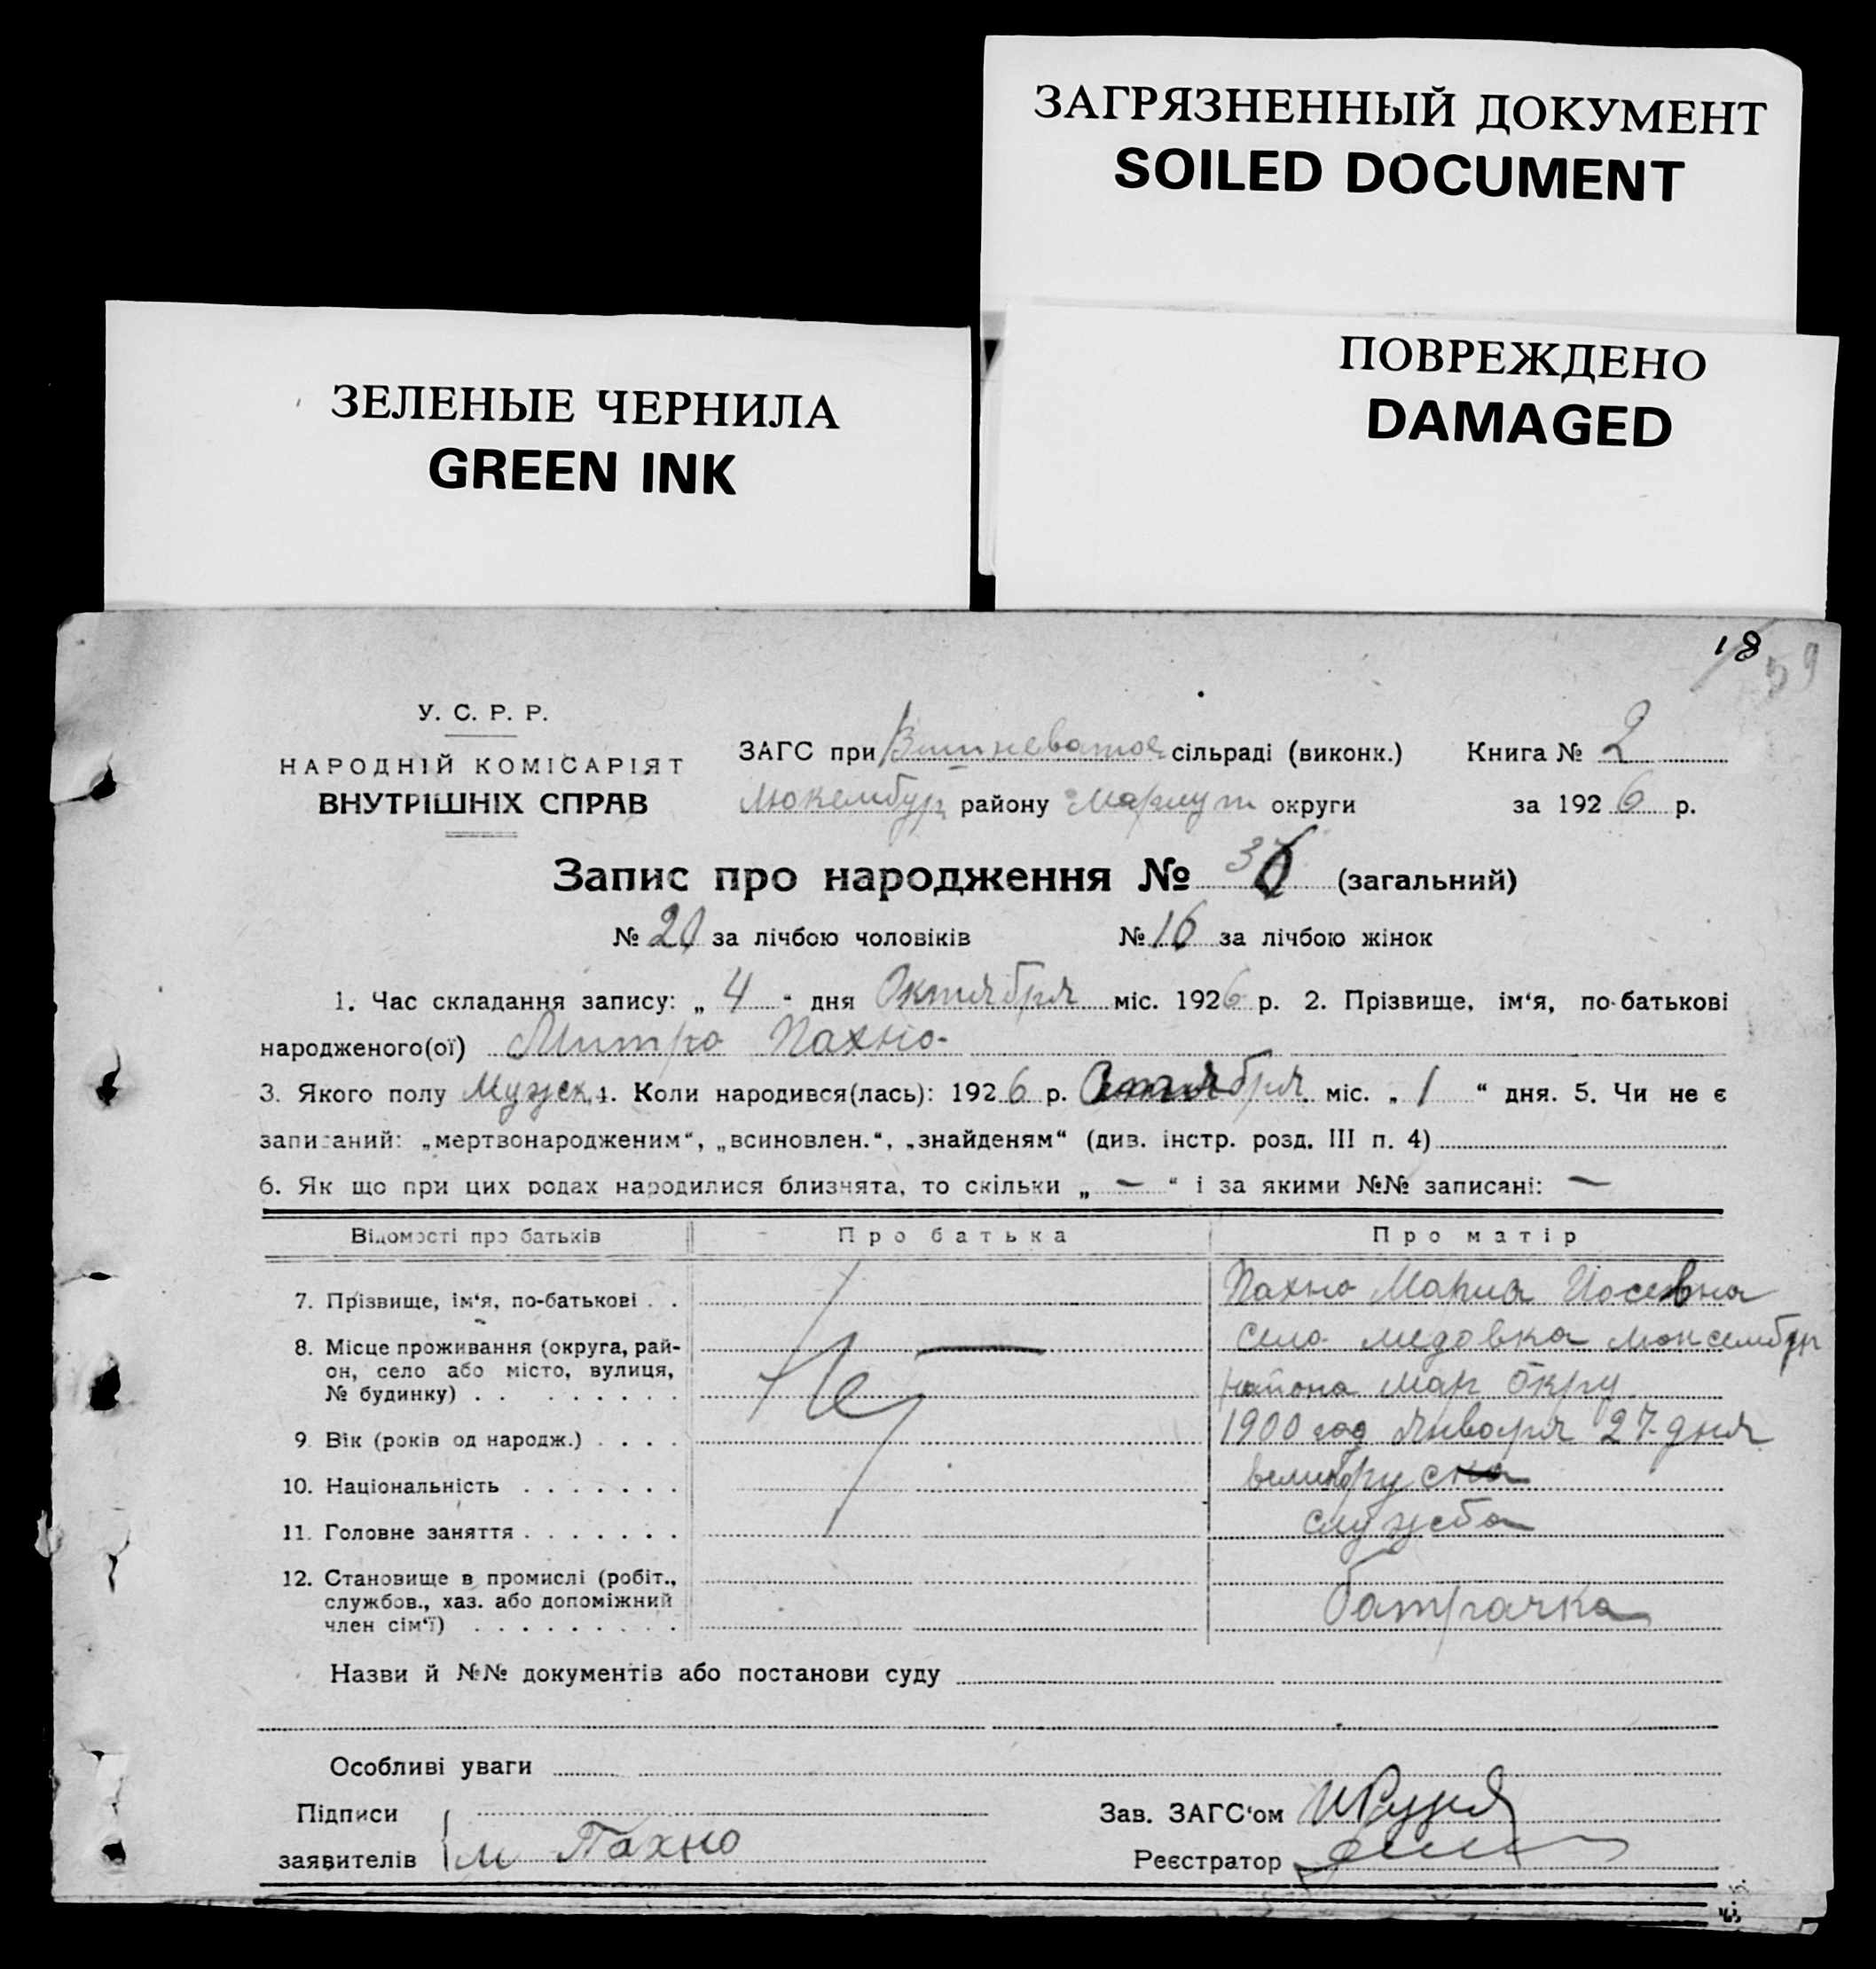 ЗАГРЯЗНЕННЫЙ ДОКУМЕНТ
SOILED DOCUMENT
ПОВРЕЖДЕНО
DAMAGED
ЗЕЛЕНЫЕ ЧЕРНИЛА
GREEN INK
18
59
У. С. Р. Р.
НАРОДНІЙ КОМІСАРІЯТ
ВНУТРІШНІХ СПРАВ
ЗАГС при Вишневатое сільраді (виконк.) Книга № 2
Люкембур району Мариуп округи за 1926 р.
Запис про народження № (загальний)
№ 20 за лічбою чоловіків № 16 за лічбою жінок
1. Час складання запису: „ 4 “ дня Октября міс. 1926 р. 2. Прізвище, ім‘я, по-батькові
народженого(ої) Митро Пахно
3. Якого полу Мужск. 4. Коли народився(лась): 1926 р. Октября міс. „ 1 “ дня. 5. Чи не є
записаний: „мертвонародженим“, „всиновлен.“, „знайденям“ (див. інстр. розд. III п. 4)
6. Як що при цих родах народилися близнята, то скільки „ — “ і за якими №№ записані: —
Відомості про батьків Про батька Про матір
7. Прізвище, ім‘я, по-батькові . . Пахно Мария Иосевна
8. Місце проживання (округа, рай- село медовка
он, село або місто, вулиця,
№ будинку) . . . . . . . . . района мар Окру
9. Вік (років од народж.) . . . . 1900 год Января 27 дня
10. Національність . . . . . . . великоруска
11. Головне заняття . . . . . . . служба
12. Становище в промислі (робіт.,
службов., хаз. або допоміжний батрачка
член сім‘ї) . . . . . . . . .
Назви й №№ документів або постанови суду
Особливі уваги
Підписи Зав. ЗАГС‘ом
заявителів м Пахно Реєстратор